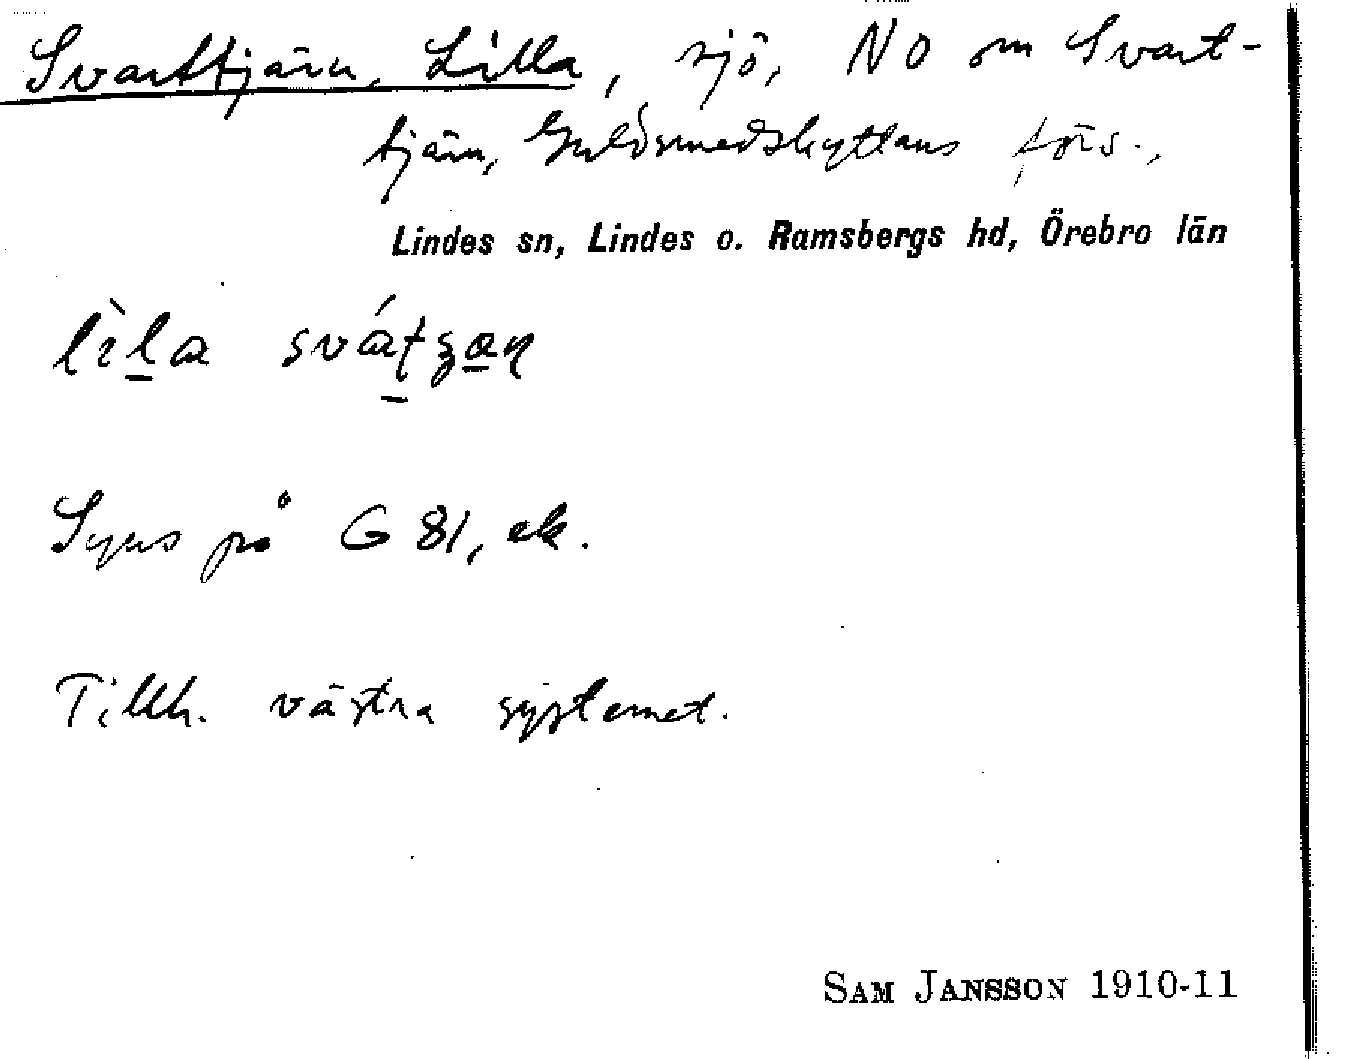 Svarttjärn, Lilla, sjö, NO om Svart-
tjärn, Guldsmedshyttans förs.,
Lindes sn, Lindes o. Ramsbergs hd, Örebro län
Synes på G 81, ek.
Tillh. västra systemet.
SAM JANSSON 1910-11